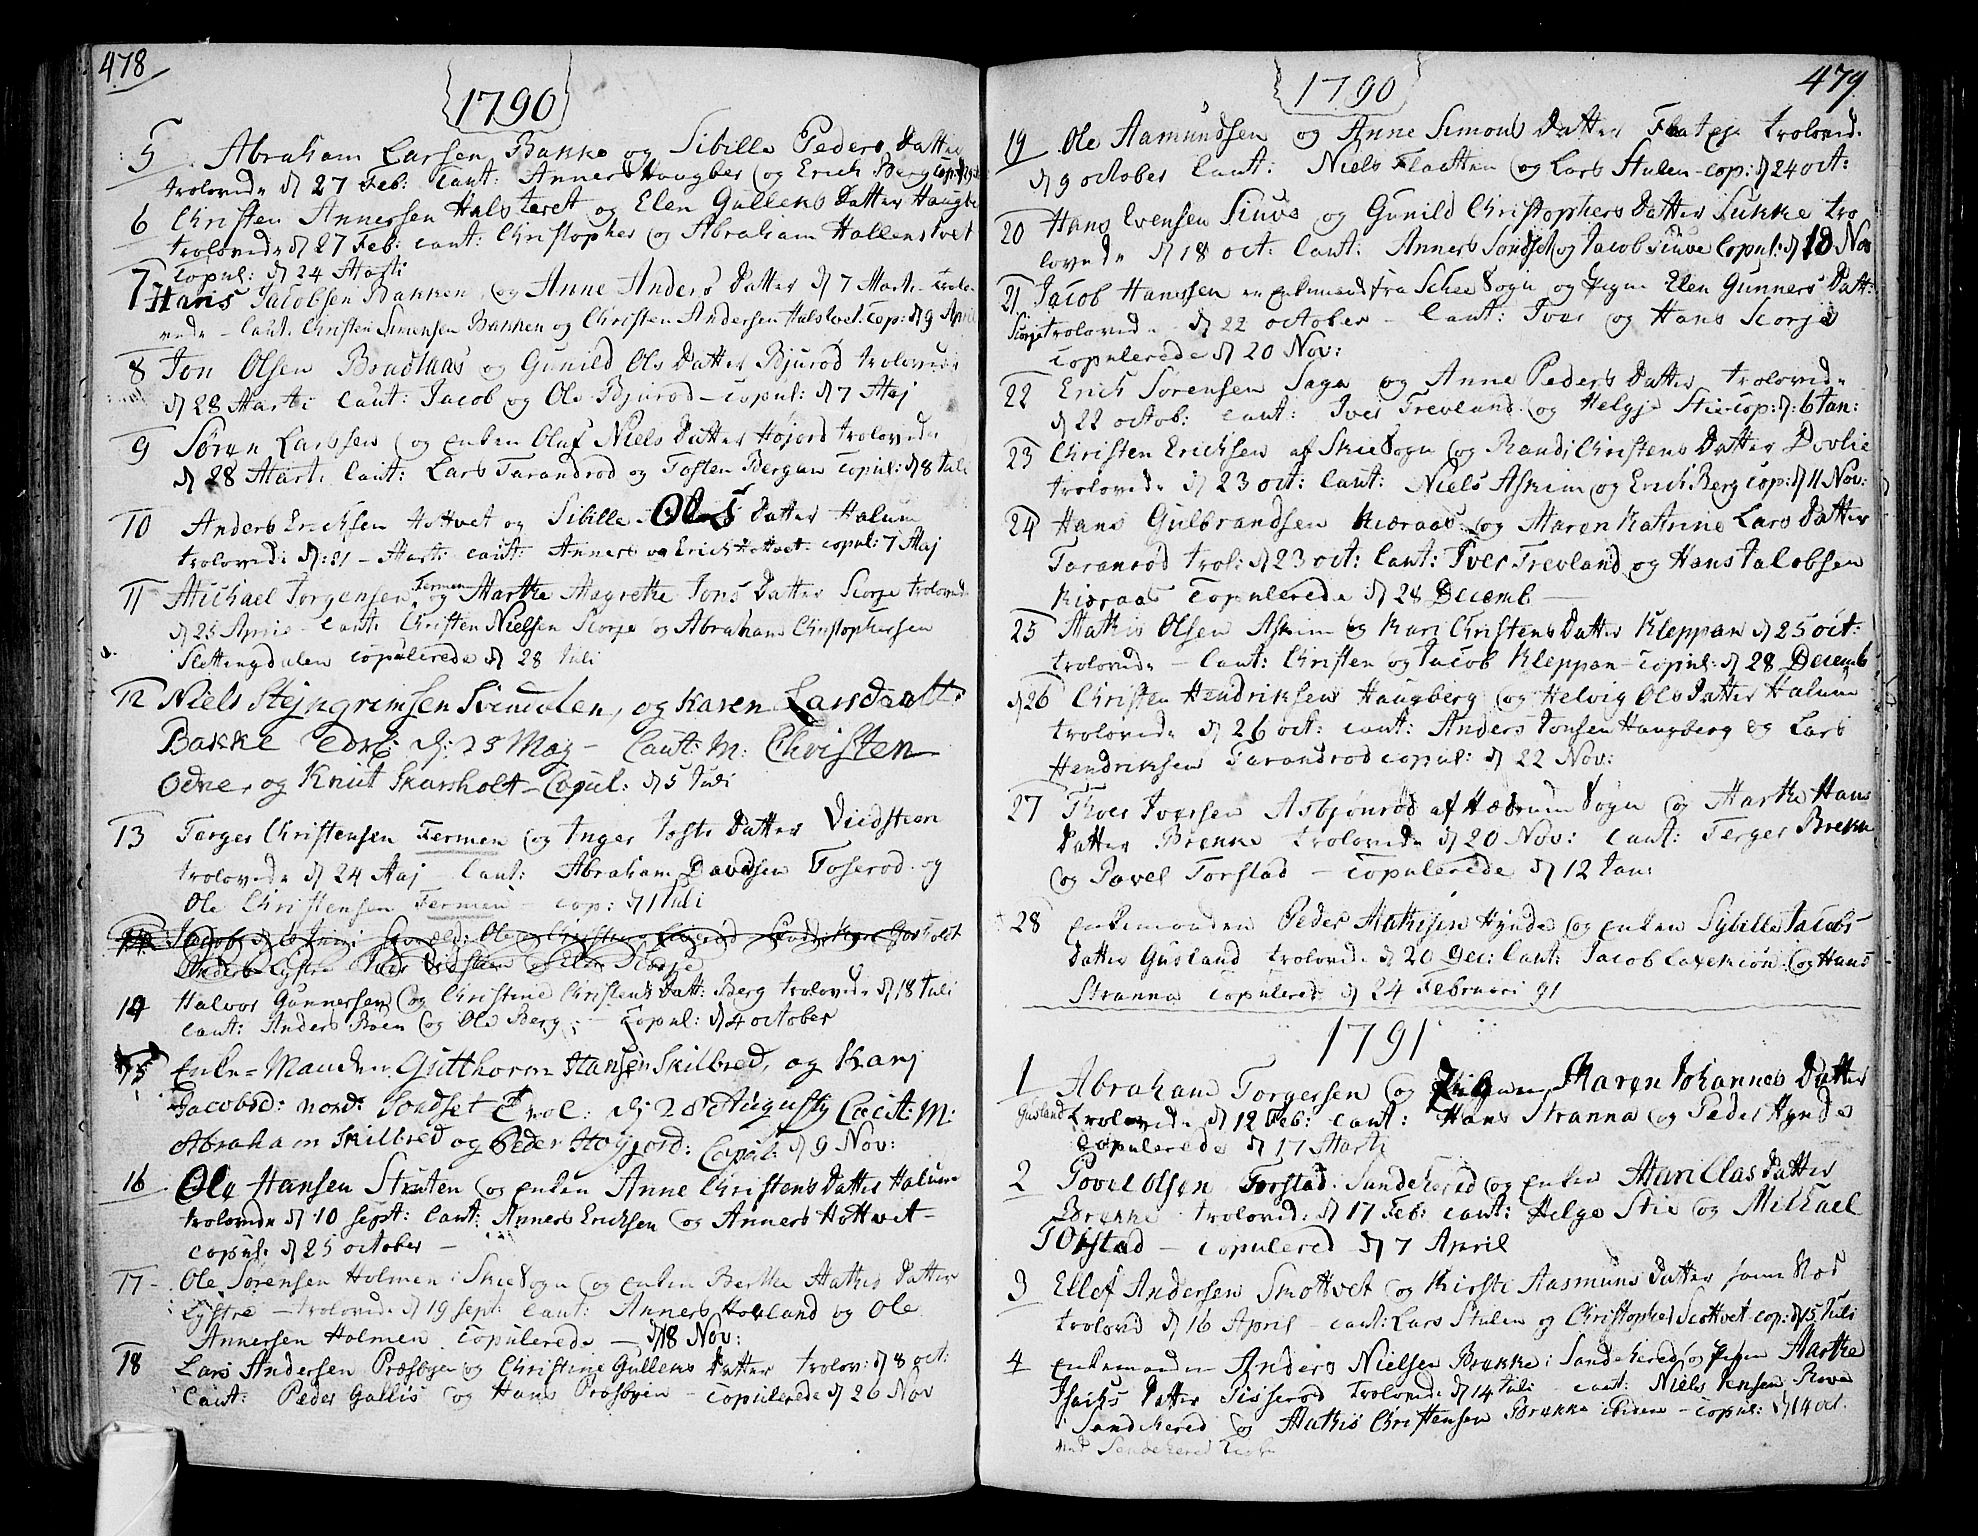 478
1790
5 Abraham Larsen Bakke og Sibille Peders Datter
trolovede d 27 Feb: Caut: Anners Haugber og Erich Berg cop:
6 Christen Annersen Halsteret og Elen Gullens Datter Haugbe
trolovede d 27 Feb: caut: Christopher og Abraham Hallenstvet
copul: d 24 Marti
7 Hans Jacobsen Bakken, og Anne Anders Datter d 7 Marti trolo
vede - Caut. Christen Simensen Bakken og Christen Andersen Halstvet. cop: d 9 April
8 Jon Olsen Braataas og Gunild Ols Datter Bjurød trolovede
d 28 Marti Caut: Jacob og Ole Bjurød - copul: d 7 Maj
9 Søren Larssen og enken Oluf Niels Datter Højord trolovede
d 28 Marti Caut: Lars Tarandrød og Tosten Bergan copul: d 8 Juli
10 Anders Ericksen Hottvet og Sibille Ols Datter Halum
trolovede d: 21 - Marti caut: Anners og Erich Hottvet copul: 7 Maj
11 Michael Jørgensen Fermen og Marthe Magrethe Jons Datter Scorje trolovede
d 25 Aprill - Caut: Christen Nielsen Scorje og Abraham Christophersen
Slettingdalen copulerede d 28 Juli
12 Niels Stejngrimsen Svindalen, og Karen Larsdaatt:
Bakke Trol: d: 25 Maj - Caut: M: Christen
Odne, og Knut Skarsholt - Copul: d 5 Juli
13 Torger Christensen Fermen og Inger Josts Datter Viidsteen
trolovede d 24 Maj - Caut: Abraham Davidsen Toserød og
Ole Christensen Fermen - cop: d 1 Juli
14 Halvor Gunnersen og Christine Christens Datt: Berg trolovede d 18 Juli
Caut: Anders Roen og Ole Berg - Copul: d 4 october
15 Enke=Manden Gutthorm Hansen Skilbred, og Karj
Jacobsd: nord: Sondset Trol: d: 28 Augusty Caut: M:
Abraham Skilbred og Peder Høyjord: Copul: d 9 Nov:
16 Ole Hansen Skuten og enken Anne Christens Datter Halum
trolovede d 10 sept: Caut: Anners Ericksen og Anners Hottvet -
copul: d 25 october -
17 - Ole Sørensen Holmen i Skee Sogn og enken Berthe Mathis Datter
Lystre - trolovede d 19 sept: Caut: Anners Hovland og Ole
Annersen Holmen copulerede - d 18 Nov:
18 Lars Andersen Præsbyen og Christine Gullens Datter trolov: d 8 oct:
Caut: Peder Gallis og Hans Præsbyen - copulerede d 26 Nov
479
1790
19 Ole Aamundsen og Anne Simons Datter Flateje trolovede
d 9 october Caut: Niels Flaatten og Lars Stulen - cop: d 24 oct:
20 Hans Evensen Siuve og Gunild Christophers Datter Sukke tro
lovede d 18 oct: Caut: Anners Sondset og Jacob Siuve Copul: d 18 Nov
21 Jacob Hanssen en enkemand fra Schee Sogn og Pigen Elen Gunners Datt:
Scorje trolovede d 22 october - Caut: Iver og Hans Scorje
copulerede d 20 Nov:
22 Erich Sørensen Saga og Anne Peders Datter trolovede
d 22 octob: Caut: Iver Trevland og Helgje Stie - cop: d: 6 Jan:
23 Christen Ericksen af Skie Sogn og Randi Christens Datter Dovlie
trolovede d 23 oct: Caut: Niels Askim og Erich Berg cop: d 11 Nov:
24 Hans Gulbrandsen Kieraas og Maren Katrine Lars Datter
Taranrød trol: d 23 oct: Caut: Iver Trevland og Hans Jacobsen
Kieraas Copulerede d 28 Decemb -
25 Mathis Olsen Askim og Kari Christens Datter Kleppan d 25 oct:
trolovede - Caut: Christen og Jacob Kleppan - copul: d 28 Decemb
26 Christen Hendriksen Haugberg og Helvig Ols Datter Halum
trolovede d 26 oct: caut: Anders Jonsen Haugberg og Lars
Hendriksen Tarandrød copul: d 22 Nov:
27 Thver Iversen Asbjønrød af Hædrum Sogn og Marthe Hans
Datter Brekke trolovede d 20 Nov: Caut: Torger Brekke
og Povel Torstad - copulerede d 12 Jan:
28 enkemanden Peder Mathisen Hynde og enken Sybille Jacobs
Datter Gusland trolovede d 20 Dec: Caut: Jacob Laveskiøn og Hans
Stranna copulerede d 24 Februari 91
1791
1 Abraham Torgersen og Pigen Maren Johannes Datter
Gusland trolovede d 12 Feb: caut: Hans Stranna og Peder Hynde
copulerede d 17 Marti
2 Povel Olsen Torstad Sandehered og enken Mari Clas Datter
Brekke trolovede: d 17 Feb: caut: Helge Stie og Michael
Torstad - copulered d 7 April
3 Ellef Andersen Skottvet og Kirsti Aasmuns Datter
trolovd d 16 April - caut: Lars Stulen og Christopher Scottvet cop: d 15 Juli
4 enkemanden Anders Nielsen Brekke i Sandehered og Pigen Marthe
Isachs Datter Sisserød trolovede d 14 Juli - caut: Niels Jensen Rova
i Sandehered og Mathis Christensen Brekke - copul: d 14 oct.